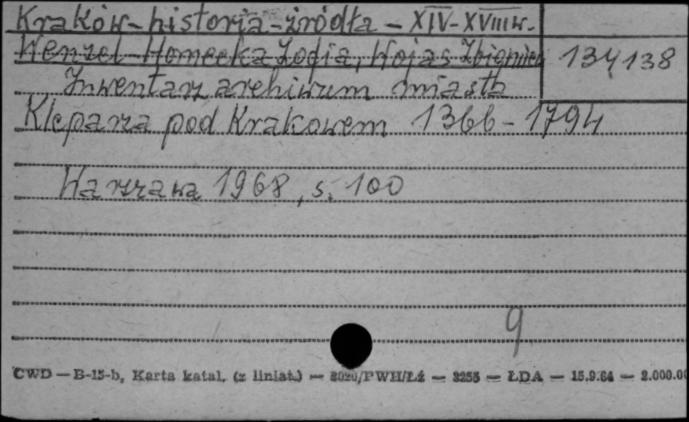 Kraków-historia-źródła - XIV-XVIII w.
Wenzel-Homecka Zofia, Wojas Zbigniew
134138
Inwentarz archiwum miasta
Kleparza pod Krakowem 1366-1794
Warszawa 1968, s. 100
9
CWD — B-15-b, Karta katal. (z liniat.) — /PWH/Łź — 3255 — ŁDA — 15.9.64 — 2.000.00